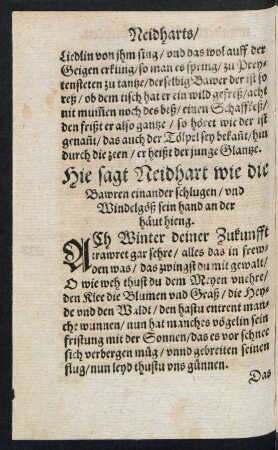 Neidharts/
Liedlin von jhm sing/ vnd das wol auff der
Geigen erkling/ so man es spring/ zu Prey-
tensteten zu tantze/ derselbig Bawer der ist so
reß/ ob dem tisch hat er ein wild gefreß/ acht
nit mussen noch des beß/ einen Schaffkeß/
den frißt er also gantze/ so höret wie der ist
genañt/ das auch der Tölpel sey bekañt/ hin
durch die zeen/ er heißt der junge Glantze.
Hie sagt Neidhart wie die
Bawren einander schlugen/ vnd
Windelgöß sein hand an der
häut hieng.
ACh Winter deiner Zukunfft
trawret gar sehre/ alles das in frew
den was/ das zwingst du mit gewalt/
O wie weh thust du dem Meyen vnehre/
den Klee die Blumen vnd Graß/ die Hey-
de vnd den Waldt/ den hastu entrent man-
che wunnen/ nun hat manches vögelin sein
fristung mit der Sonnen/ das es vor schnee
sich verbergen müg/ vnnd gebreiten seinen
flug/ nun leyd thustu vns günnen.
Das